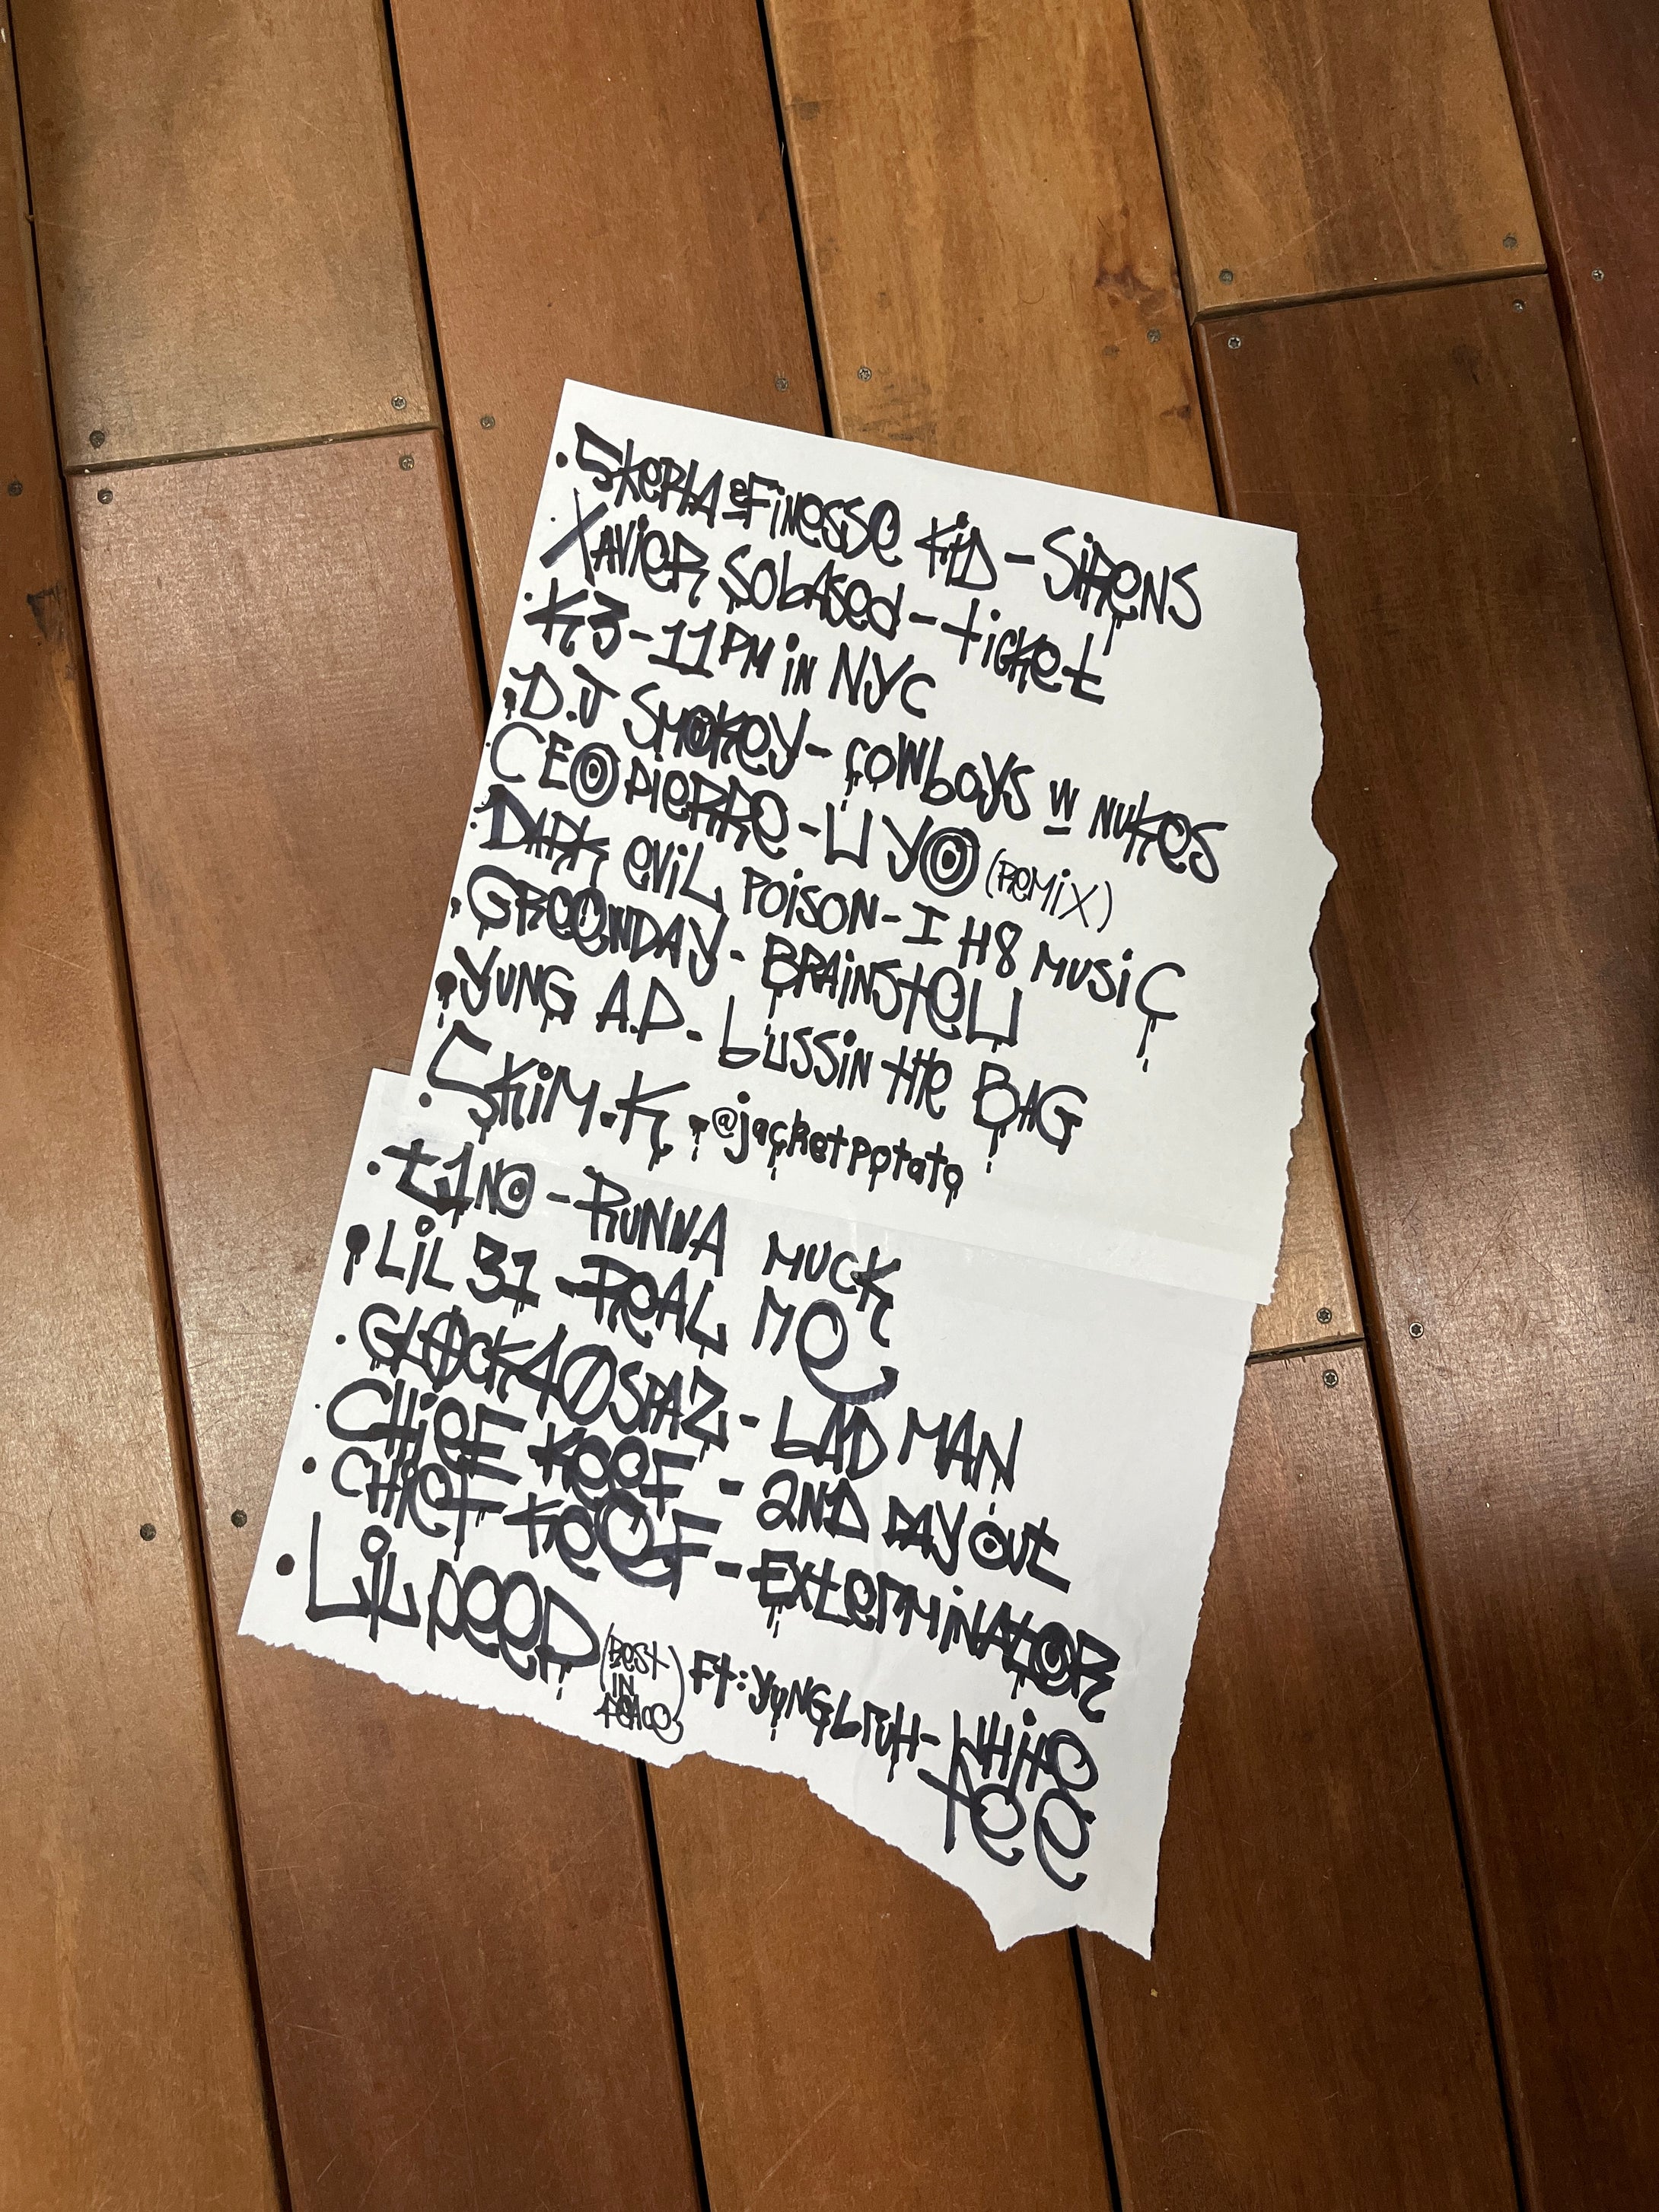 · SKePtA & FiNesse KiD - SiReNS
· XAVieR SobAsed - ticket
· K3 - 11PM iN NYC
· D.J SMokey - cowboys w NUKes
· CEO PieRRe - LI YO (ReMiX)
· DARK eViL POiSON - I H8 MUSiC
· GReeNDAY - BRAiNSteW
· YUNG A.D. - bUSSiN tHe BAG
· SKiM.K - @jacketpotato
· t1NO - RUNNA MUCK
· LiL 31 - ReAL Me
· GLOck40SPAZ - bAD MAN
· CHieF KeeF - 2ND DAY OUt
· CHieF KeeF - ExteRMiNAtOR
· LiL PeeP (ReSt IN PeAce) Ft: YUNG bRUH - WHite tee